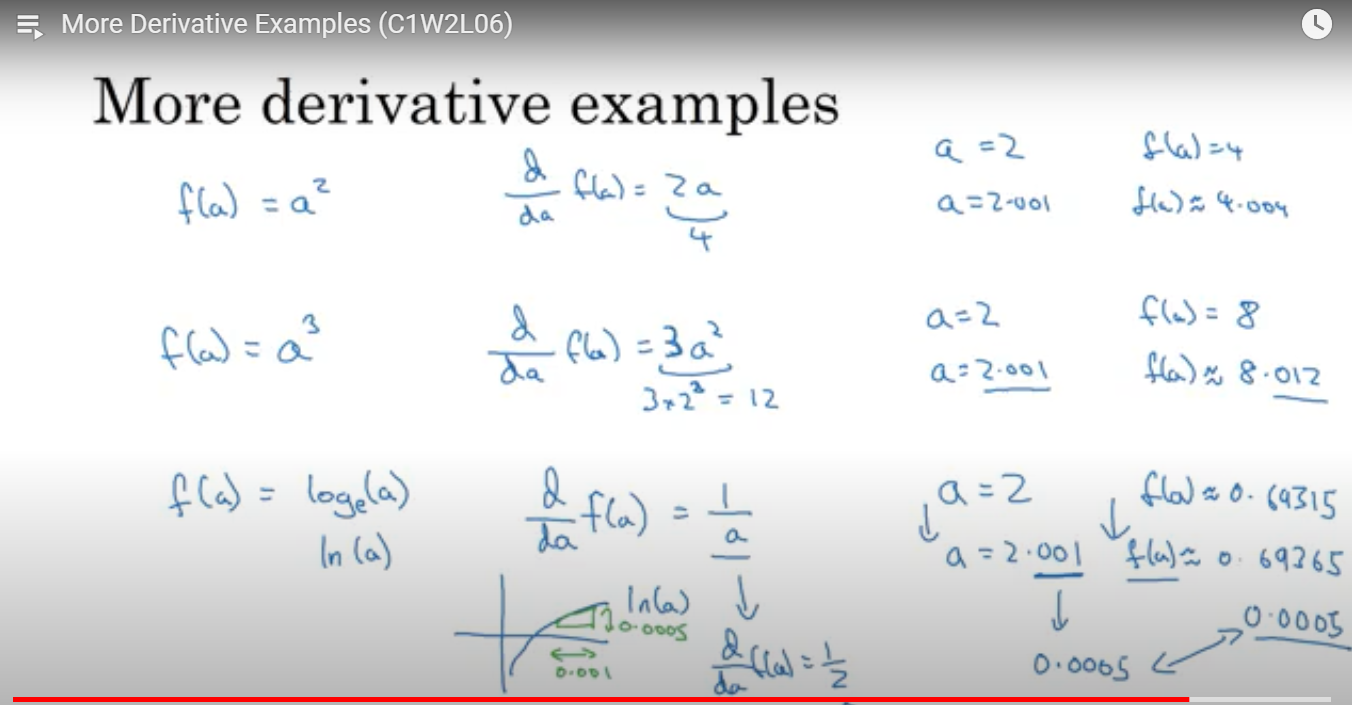 More Derivative Examples (C1W2L06)
More derivative examples
f(a) = a²
d/da f(a) = 2a
4
a = 2
f(a) = 4
a = 2.001
f(a) ≈ 4.004
f(a) = a³
d/da f(a) = 3a²
3×2² = 12
a = 2
f(a) = 8
a = 2.001
f(a) ≈ 8.012
f(a) = logₑ(a)
ln(a)
d/da f(a) = 1/a
a = 2
f(a) ≈ 0.69315
↓ a = 2.001
↓ f(a) ≈ 0.69365
ln(a)
0.0005
0.001
↓
d/da f(a) = 1/2
↓
0.0005
0.0005